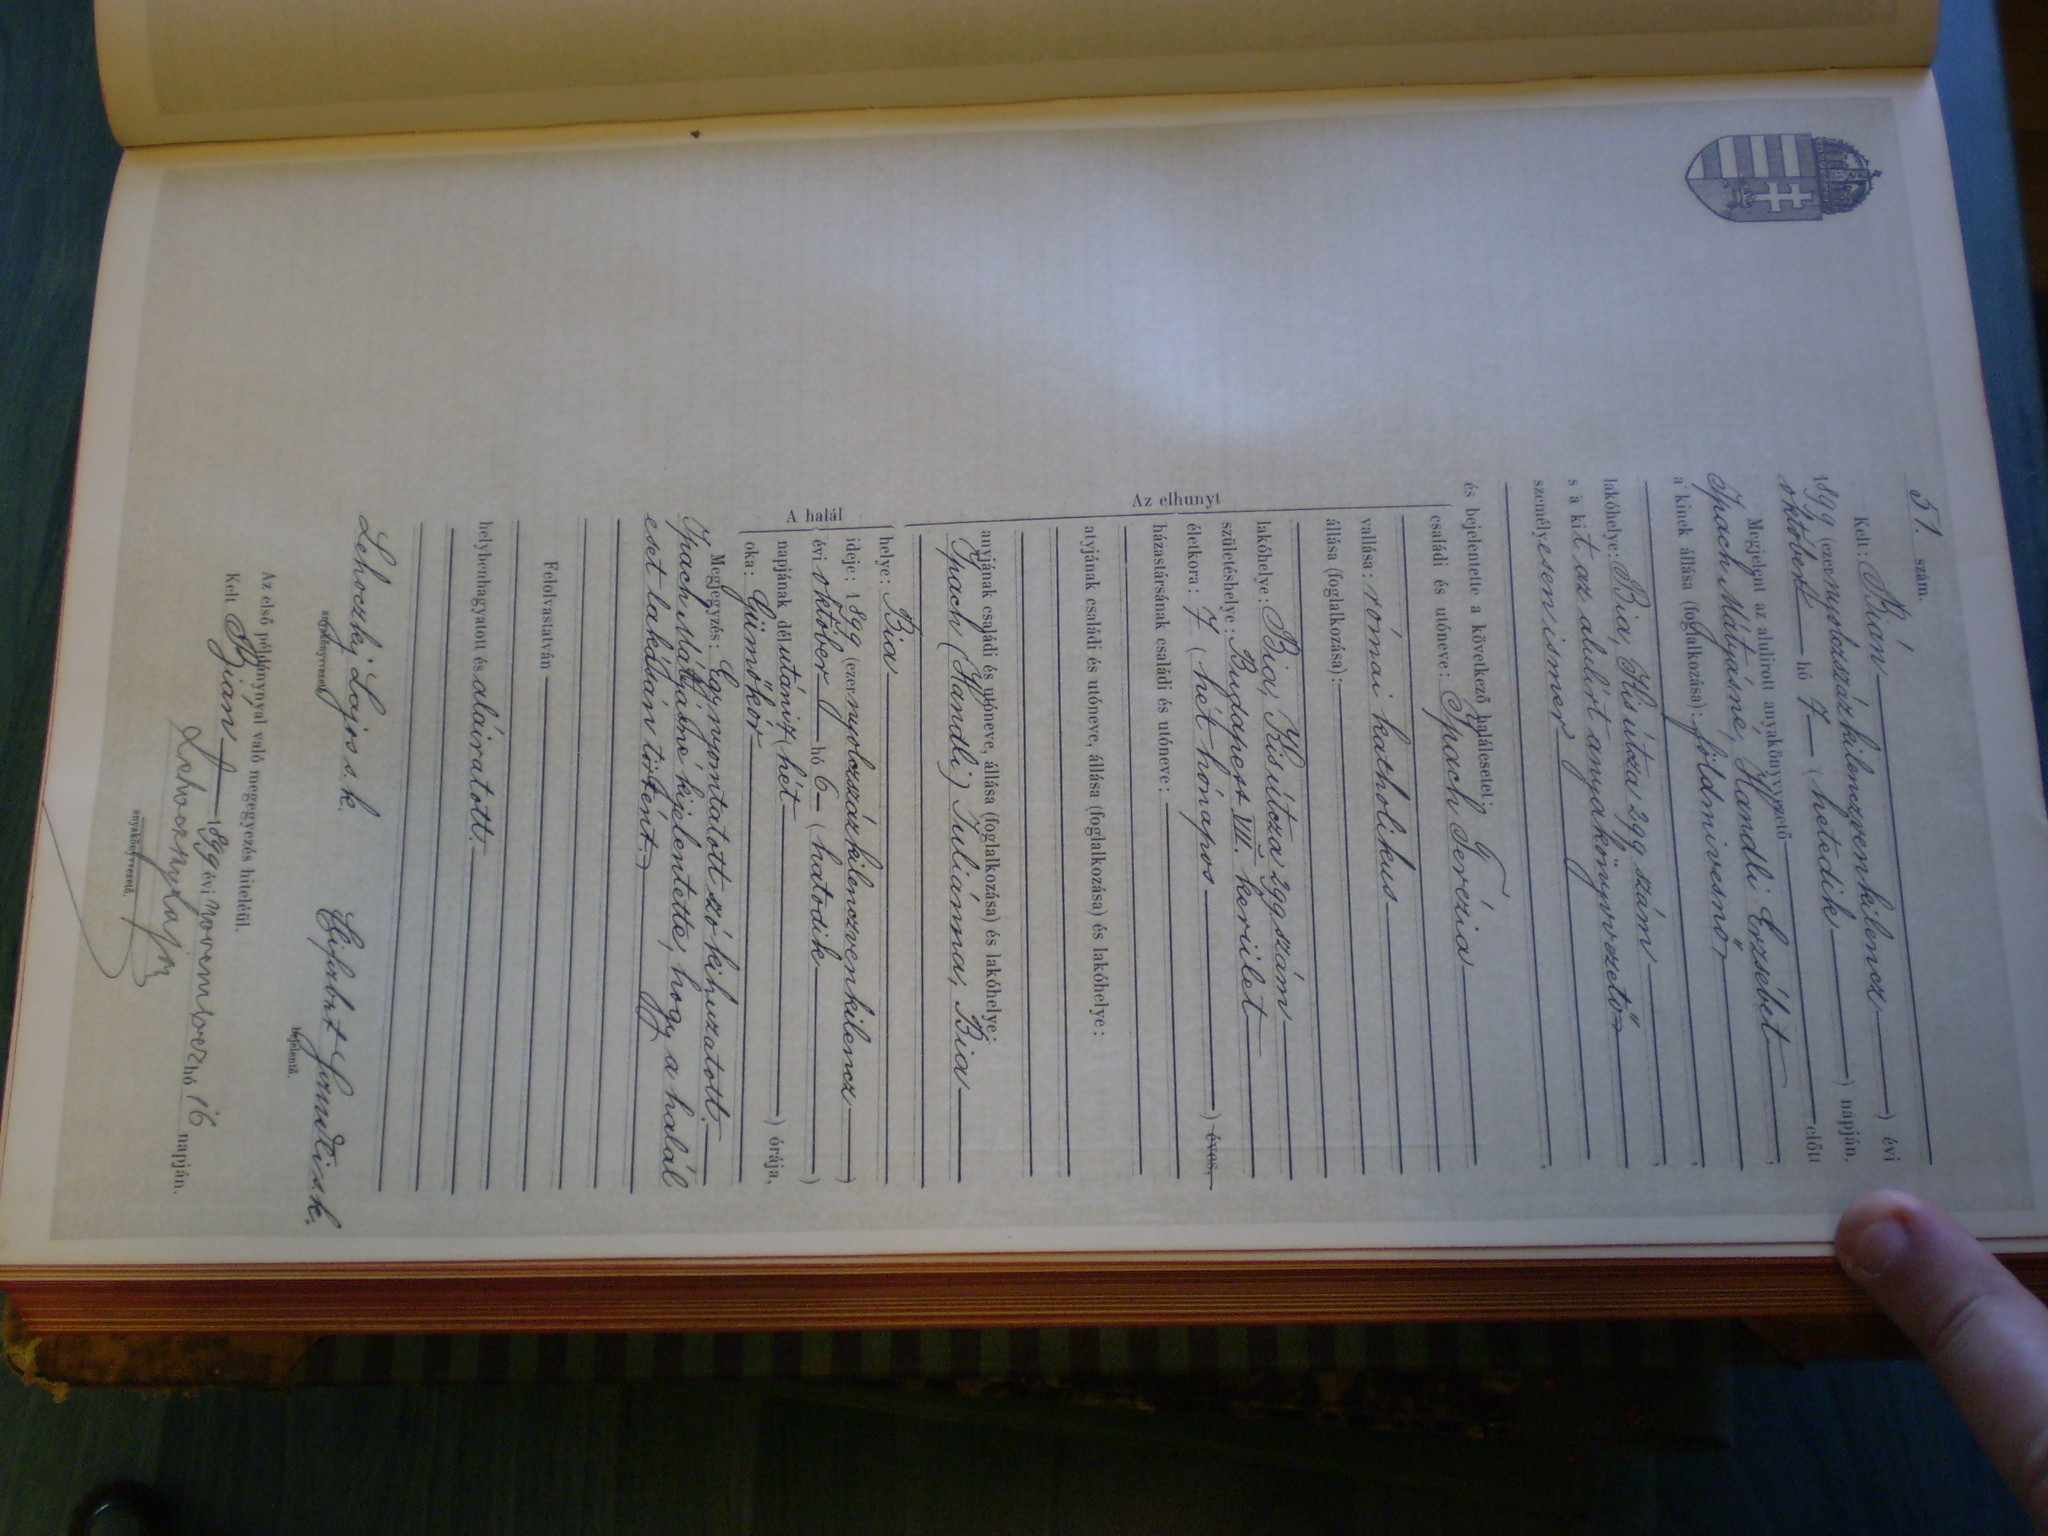 51. szám.
Kelt: Bián
1899 (ezer nyolczszázkilenczvenkilencz) évi
október hó 7 (hetedik) napján.
Megjelent az alulirott anyakönyvvezető előtt
Spach Mátyásné, Handli Erzsébet,
a kinek állása (foglalkozása): földmivesnő,
lakóhelye: Bia, Kis útcza 299 szám,
s a kit az alulirt anyakönyvvezető
személyesen ismer,
és bejelentette a következő halálesetet:
Az elhunyt
családi és utóneve: Spach Terézia
vallása: római katholikus
állása (foglalkozása):
lakóhelye: Bia, Kis útcza 299 szám
születéshelye: Budapest VII. kerület
életkora: 7 (hét hónapos) éves,
házastársának családi és utóneve:
atyjának családi és utóneve, állása (foglalkozása) és lakóhelye:
anyjának családi és utóneve, állása (foglalkozása) és lakóhelye:
Spach (Handli) Juliánna, Bia
A halál
helye: Bia
ideje: 1899 (ezer nyolczszázkilenczvenkilencz)
évi október hó 6 (hatodik)
napjának délutáni 7 (hét) órája,
oka: Gümőkór
Megjegyzés: Egy nyomtatott szó kihuzatott.
Spach Mátyásné kijelentette, hogy a halál
eset lakásán történt.
Felolvastatván
helybenhagyatott és aláiratott.
Lehoczky Lajos s. k.
anyakönyvvezető.
bejelentő.
Az első példánynyal való megegyezés hiteléül.
Kelt Bján 1899 évi november hó 16 napján.
Lehoczky Lajos
anyakönyvvezető.